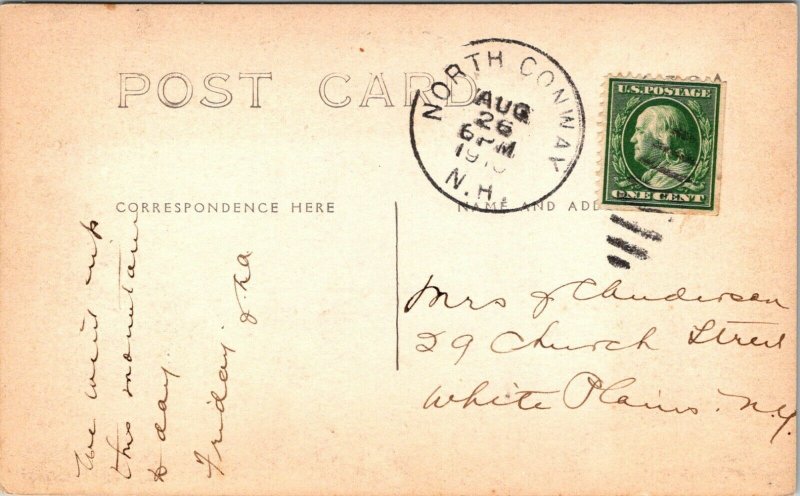 POST CARD
NORTH CONWAY
AUG
26
6 PM
1910
N.H.
U.S. POSTAGE
ONE CENT
CORRESPONDENCE HERE
NAME AND ADD
We went up
this mountain
to day.
Friday.
Mrs J C Anderson
29 Church Street
White Plains. N.Y.